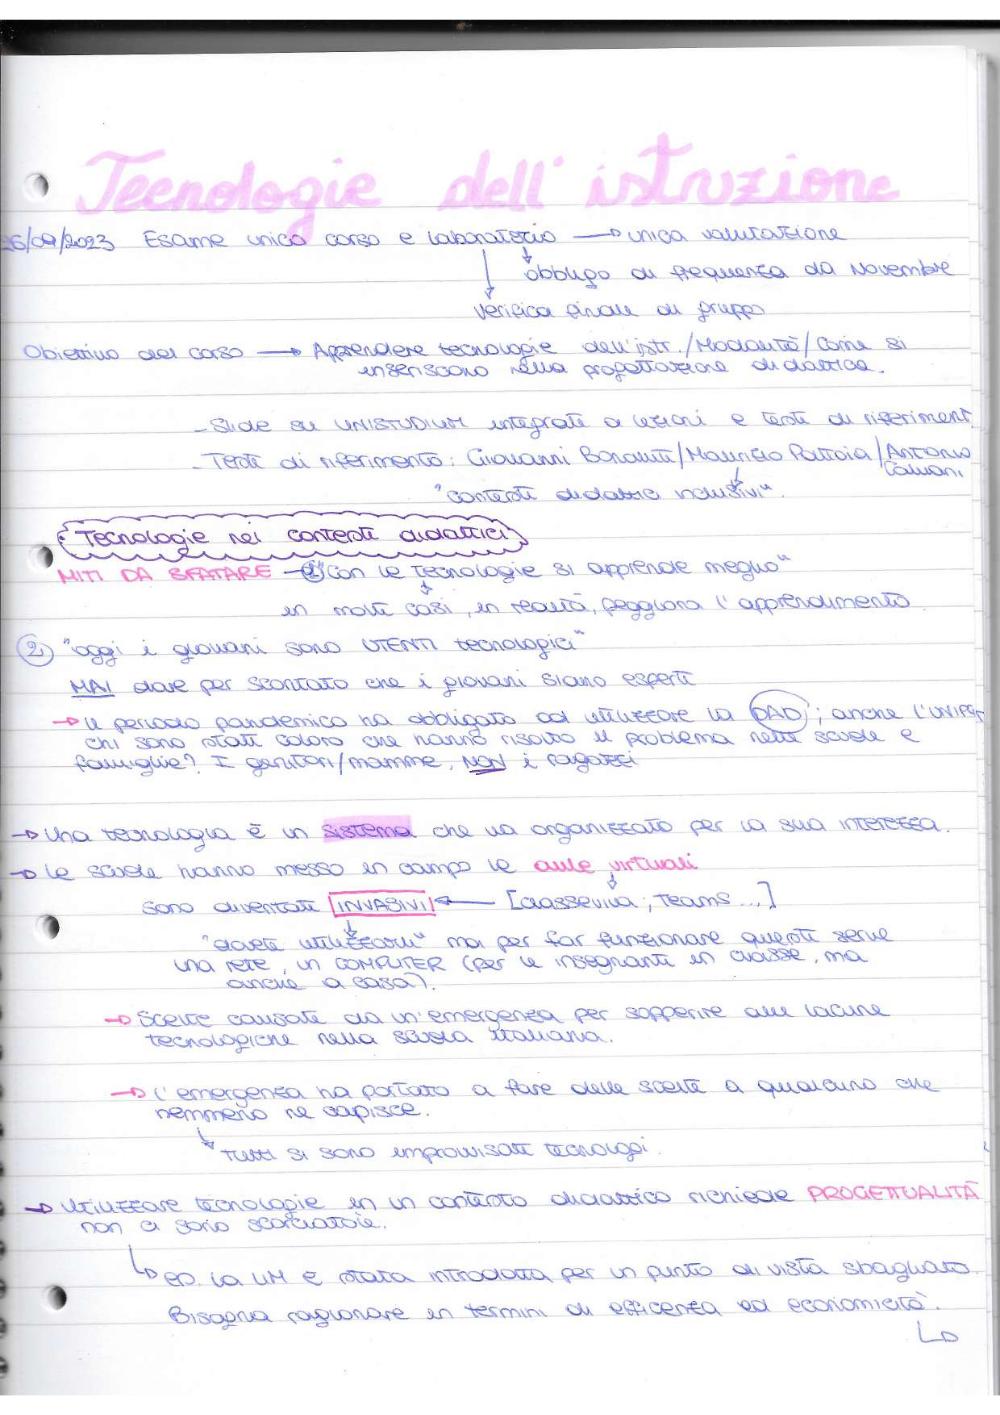 Tecnologie dell'istruzione
26/09/2023 Esame unico corso e laboratorio → unica valutazione
obbligo di frequenza da Novembre
verifica finale di gruppo
Obiettivo del corso → Apprendere tecnologie dell'istr./Modalità/Come si
inseriscono nella progettazione didattica.
- Slide su UNISTUDIUM integrate a lezioni e testi di riferimenti
- Testi di riferimento: Giovanni Bonaiuti/Maurizio Pattoia/Antonio
Calvani.
"contesti didattici inclusivi".
Tecnologie nei contesti didattici
MITI DA SFATARE → 1 "Con le tecnologie si apprende meglio"
in molti casi, in realtà, peggiora l'apprendimento
2 "oggi i giovani sono UTENTI tecnologici"
MAI dare per scontato che i giovani siano esperti
→ Il periodo pandemico ha obbligato ad utilizzare la DAD; anche l'UNIPG
chi sono stati coloro che hanno risolto il problema nelle scuole e
famiglie? I genitori/mamme, NON i ragazzi
→ Una tecnologia è un sistema che va organizzato per la sua interezza.
→ Le scuole hanno messo in campo le aule virtuali
sono diventati INVASIVI ← [classeviva, Teams...]
"dovete utilizzarli" ma per far funzionare questi serve
una rete, un COMPUTER (per le insegnanti in classe, ma
anche a casa).
→ Scelte causate da un'emergenza per sopperire alle lacune
tecnologiche nella scuola italiana.
→ L'emergenza ha portato a fare delle scelte a qualcuno che
nemmeno ne capisce.
Tutti si sono improvvisati tecnologi.
→ Utilizzare tecnologie in un contesto didattico richiede PROGETTUALITÀ
non ci sono scorciatoie.
→ es. la LIM è stata introdotta per un punto di vista sbagliato.
Bisogna ragionare in termini di efficenza ed economicità.